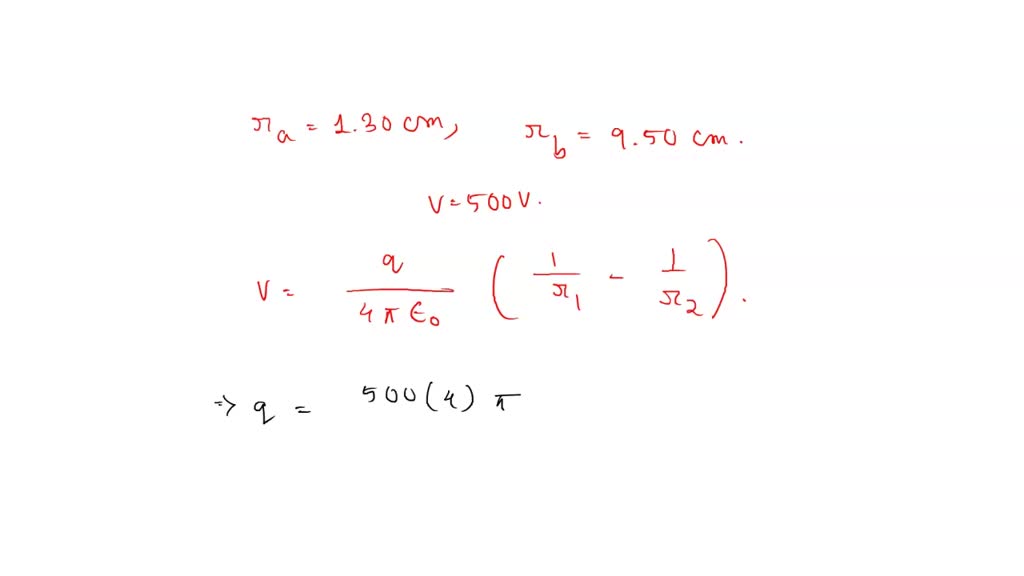 r_a = 1.30 cm, r_b = 9.50 cm.
V = 500 V.
V = q / (4 π ϵ_0) ( 1 / r_1 - 1 / r_2 ).
⇒ q = 500 (4) π